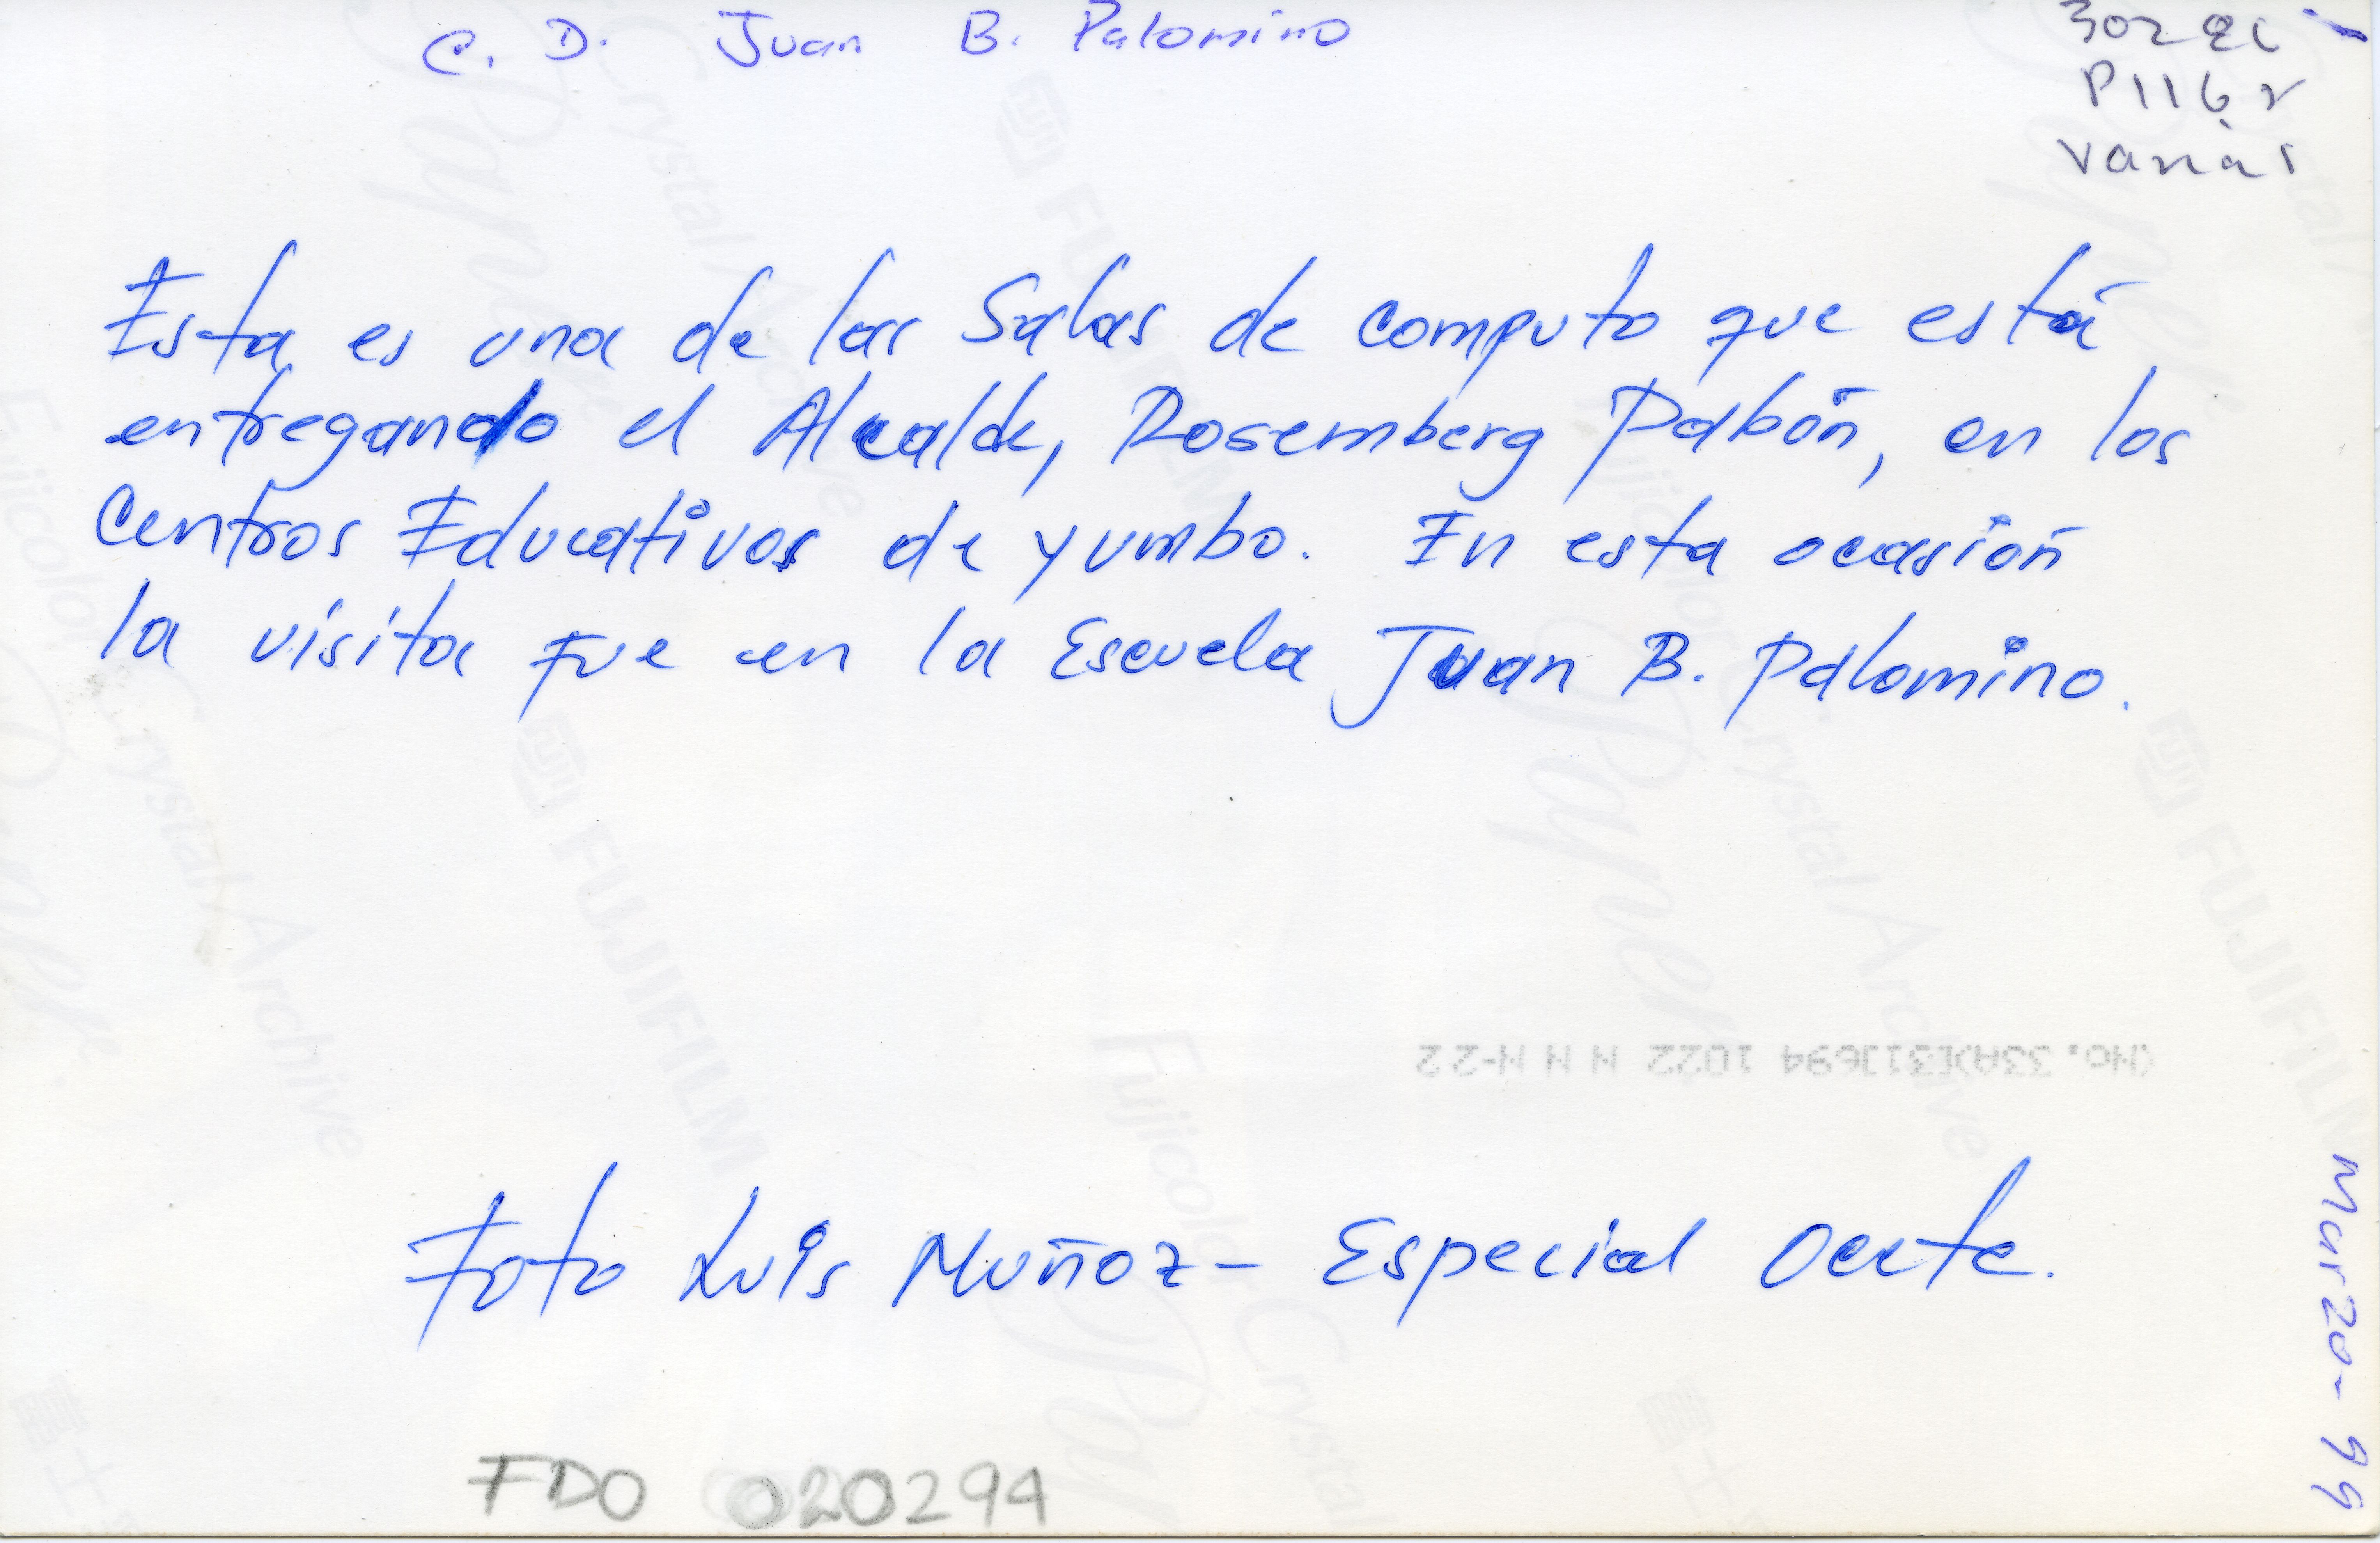 C. D. Juan B. Palomino
P116r
varias
Esta es una de las Salas de computo que está
entregando el Alcalde, Rosemberg Pabón, en los
Centros Educativos de yumbo. En esta ocasión
la visita fue en la Escuela Juan B. Palomino.
(No. 33A)[31]694 1022 N N N-22
Foto Luis Muñoz - Especial Occte.
Marzo - 99
FDO 020294
FUJIFILM
Fujicolor Crystal Archive
Paper